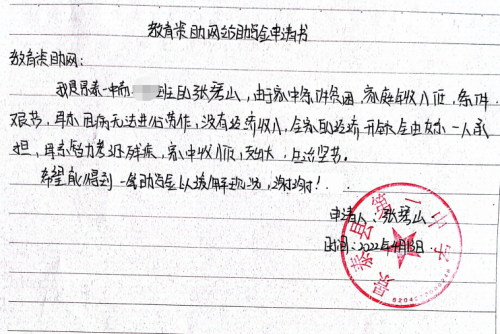 教育资助网络助学金申请书
教育资助网:
我是景泰一中高 班的张磊山,由于家中条件贫困,家庭年收入低,条件
艰苦,母亲因病无法进行劳作,没有经济收入,全家的经济开销全由父亲一人承
担,母亲智力多级残疾,家中收入低,支出大,生活坚苦。
希望能得到一笔助学金以缓解现况,谢谢!
申请人:张磊山
时间:2022年4月13日
景泰县第二中学